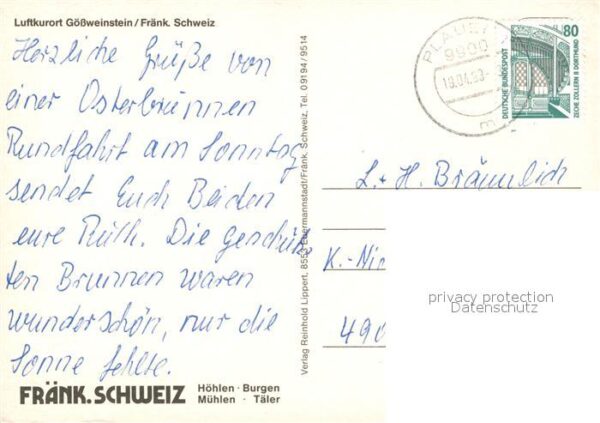 Luftkurort Gößweinstein / Fränk. Schweiz
Herzliche Grüße von
einer Osterbrunnen
Rundfahrt am Sonntag
sendet Euch Beiden
eure Ruth. Die geschütz
ten Brunnen waren
wunderschön, nur die
Sonne fehlte.
FRÄNK. SCHWEIZ
Höhlen · Burgen
Mühlen · Täler
Verlag Reinhold Lippert, 8553 Ebermannstadt/Fränk. Schweiz, Tel. 09194/9514
PLAUEN
9900
DEUTSCHE BUNDESPOST
80
ZECHE ZOLLERN II DORTMUND
L. + H. Bräunlich
K.-Nie
490
privacy protection
Datenschutz